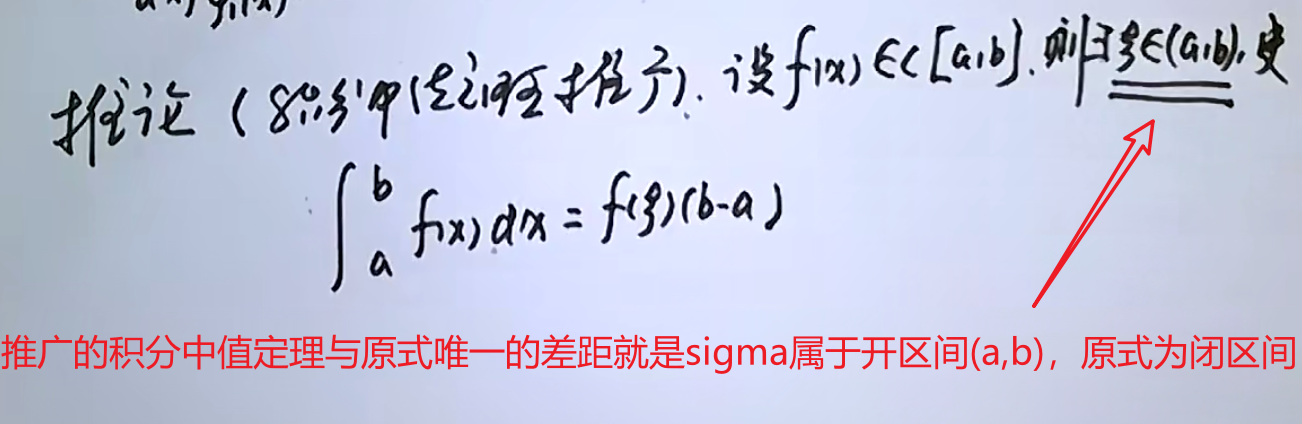 推论（积分中值定理推广）. 设f(x)∈C[a,b]. 则∃ξ∈(a,b), 使
∫ₐᵇ f(x)dx = f(ξ)(b-a)
推广的积分中值定理与原式唯一的差距就是sigma属于开区间(a,b)，原式为闭区间